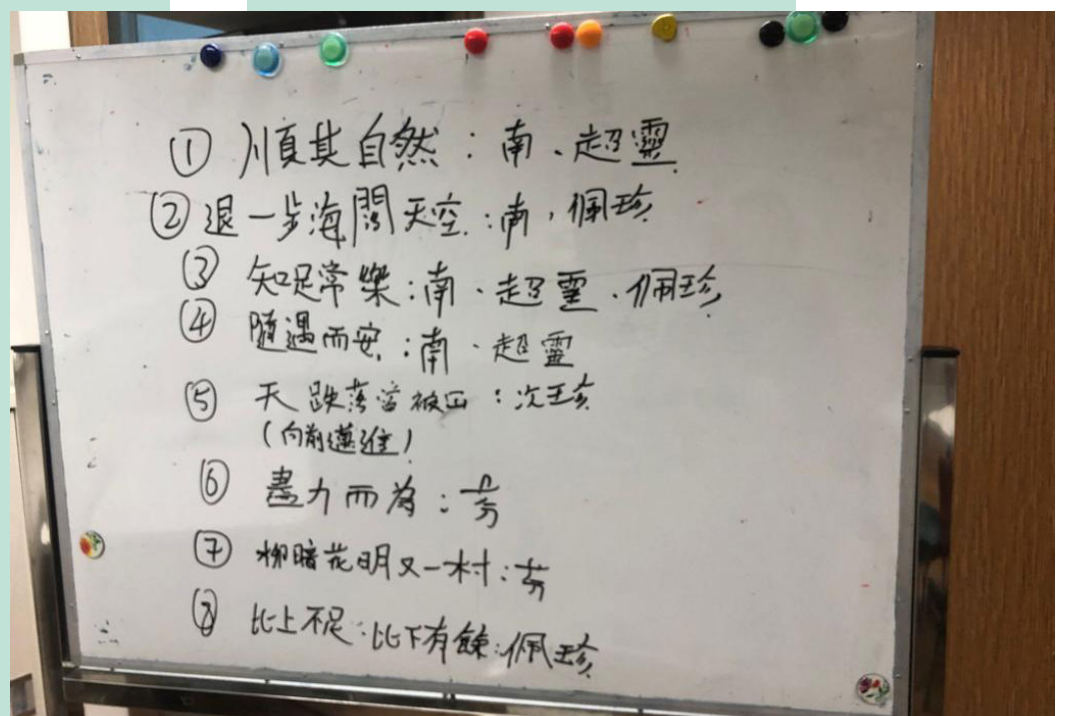 ① 順其自然：南、超靈
② 退一步海闊天空：南，佩珍
③ 知足常樂：南、超靈、佩珍
④ 隨遇而安：南、超靈
⑤ 天跌落當被冚：次珍
(向前邁進)
⑥ 盡力而為：芳
⑦ 柳暗花明又一村：芳
⑧ 比上不足：比下有餘：佩珍